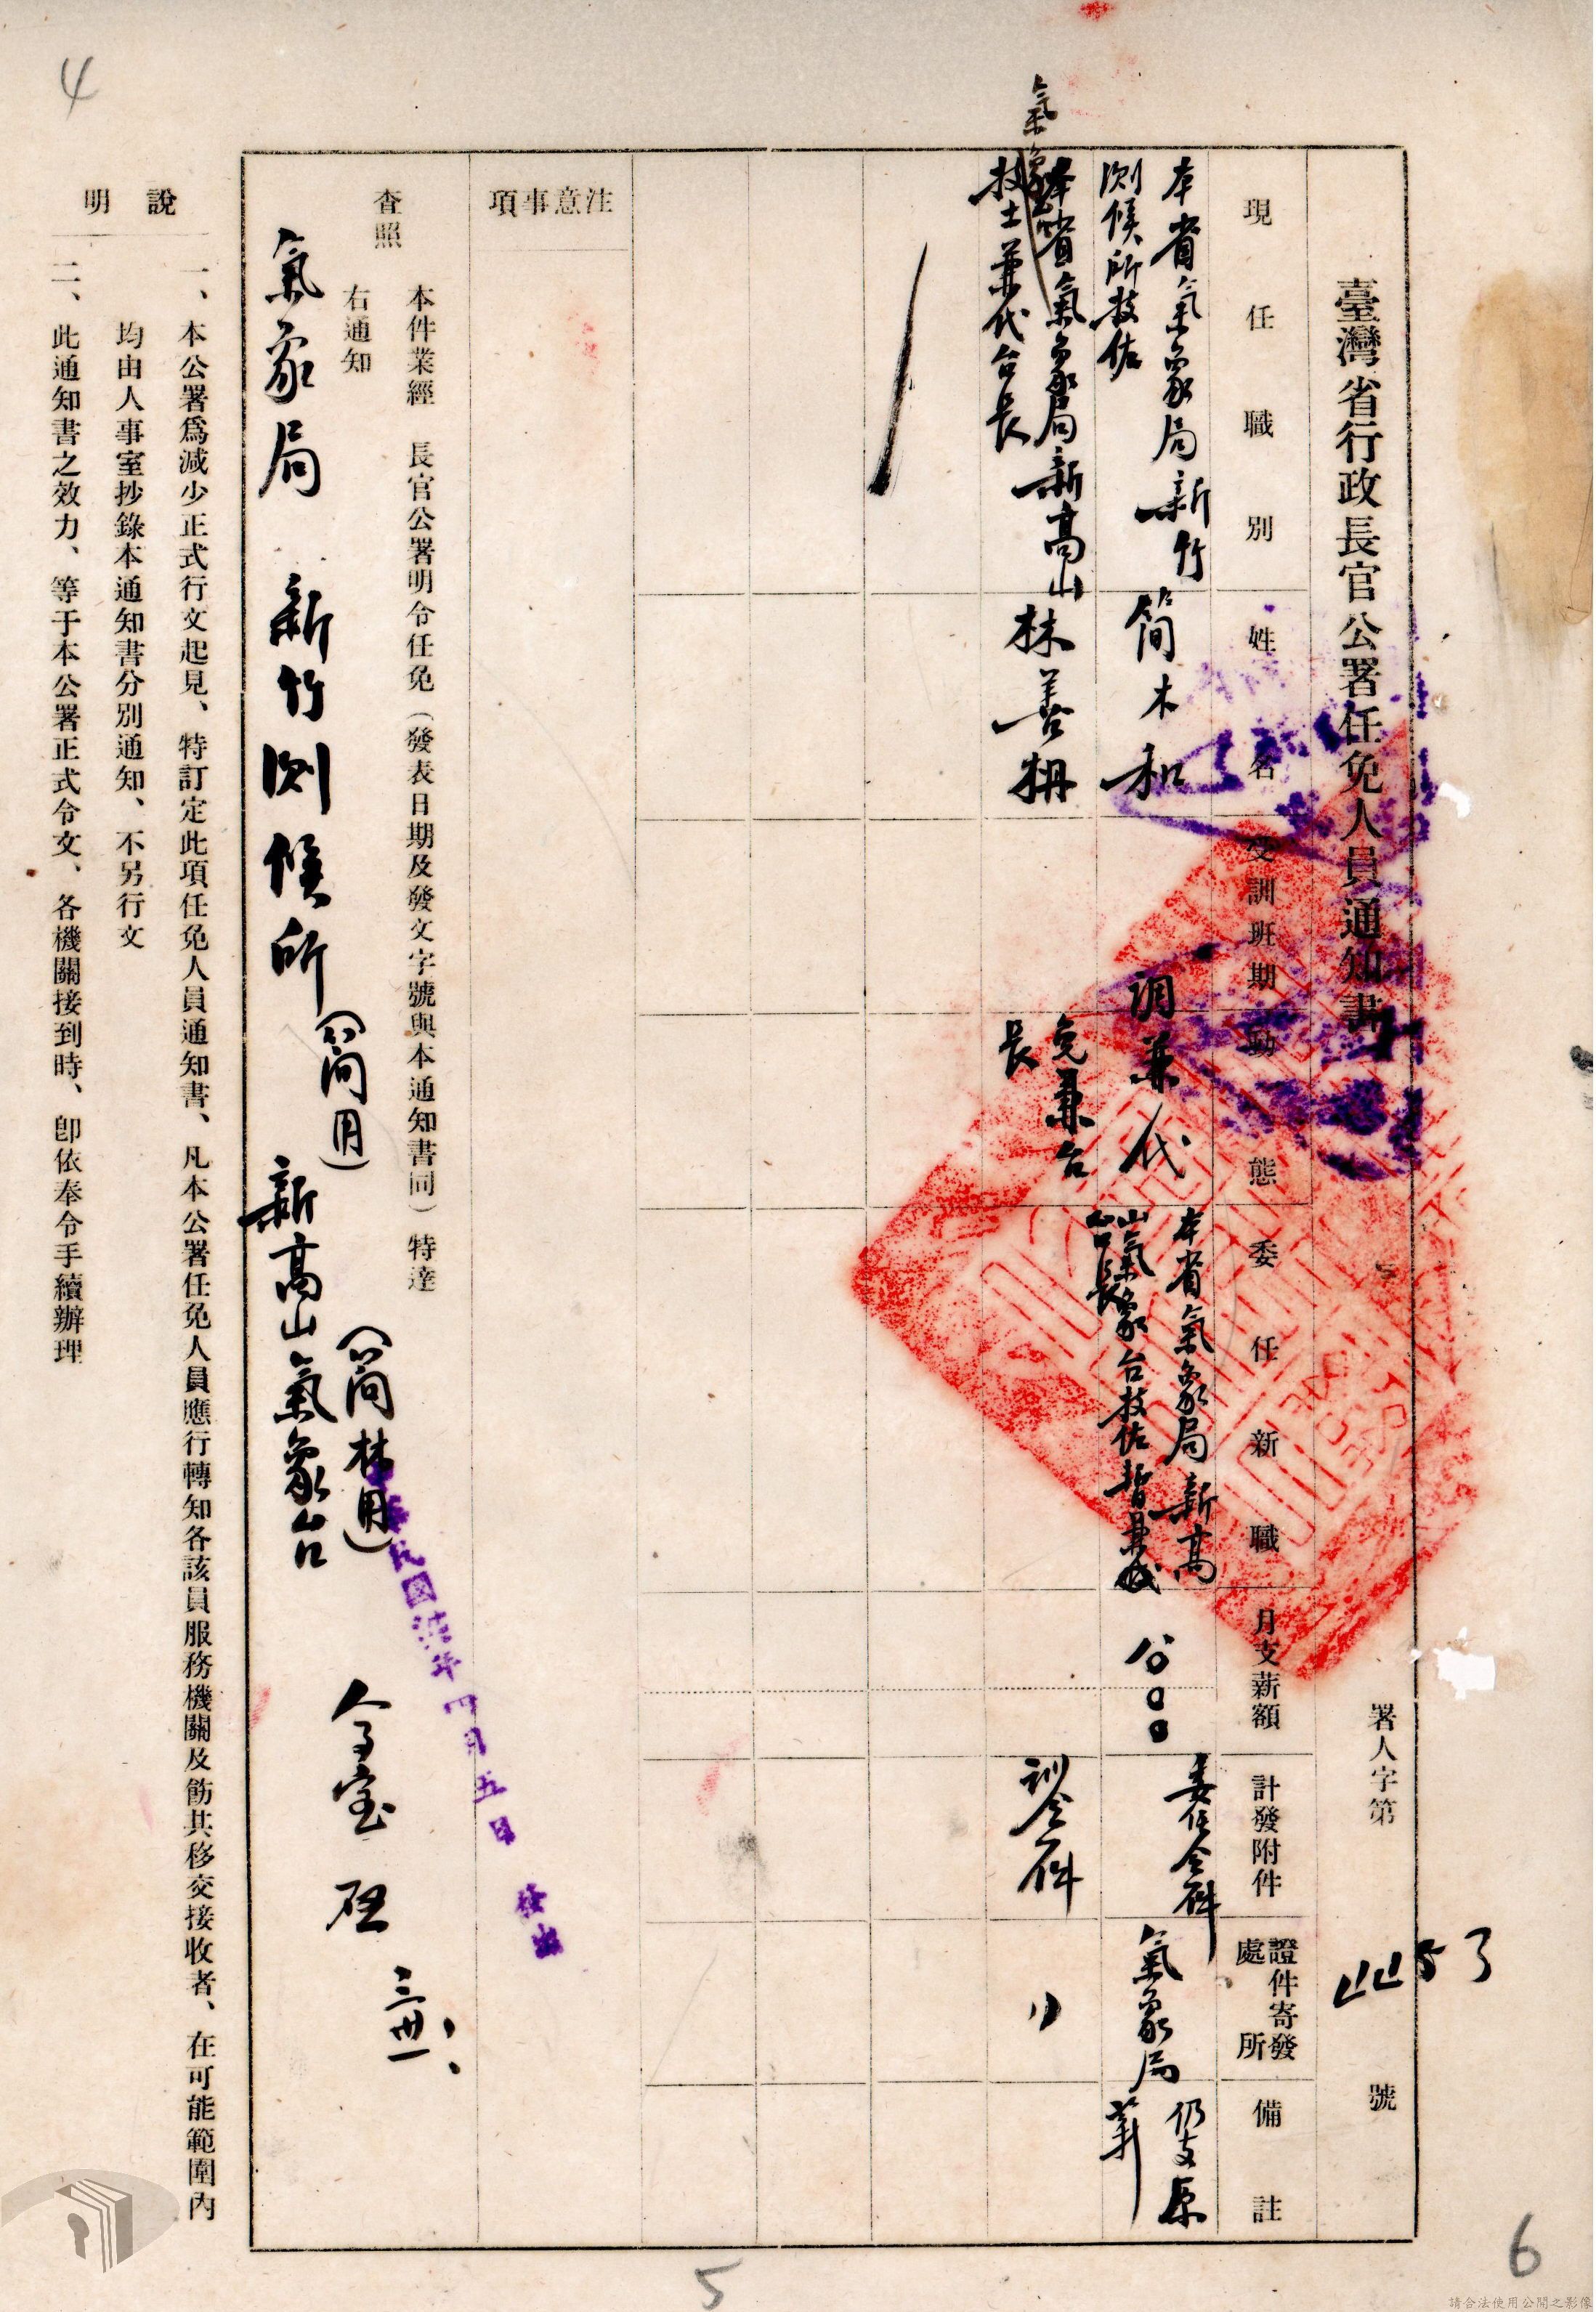 臺灣省行政長官公署任免人員通知書
署人字第
號
現任職別
姓名
受訓班期
動態
委任新職
月支薪額
計發附件
證件寄發處所
備註
本省氣象局新竹
測候所技佐
簡木和
調兼代
本省氣象局新高
山氣象台技佐暫兼代
台長
委任令一件
氣象局
仍支原
薪
氣象
本省氣象局新高山
技士兼代台長
林善
免兼台
長
訓令一件
〃
注意事項
本件業經 長官公署明令任免（發表日期及發文字號與本通知書同）特達
右通知
查照
氣象局 新竹測候所（簡用） 新高山氣象台（簡林用）
人事室 啟
三、卅一、
中華民國 年四月五日
說明
一、本公署爲減少正式行文起見、特訂定此項任免人員通知書、凡本公署任免人員應行轉知各該員服務機關及飭其移交接收者、在可能範圍內
均由人事室抄錄本通知書分別通知、不另行文
二、此通知書之效力、等于本公署正式令文、各機關接到時、卽依奉令手續辦理
4
5
6
請合法使用公開之影像